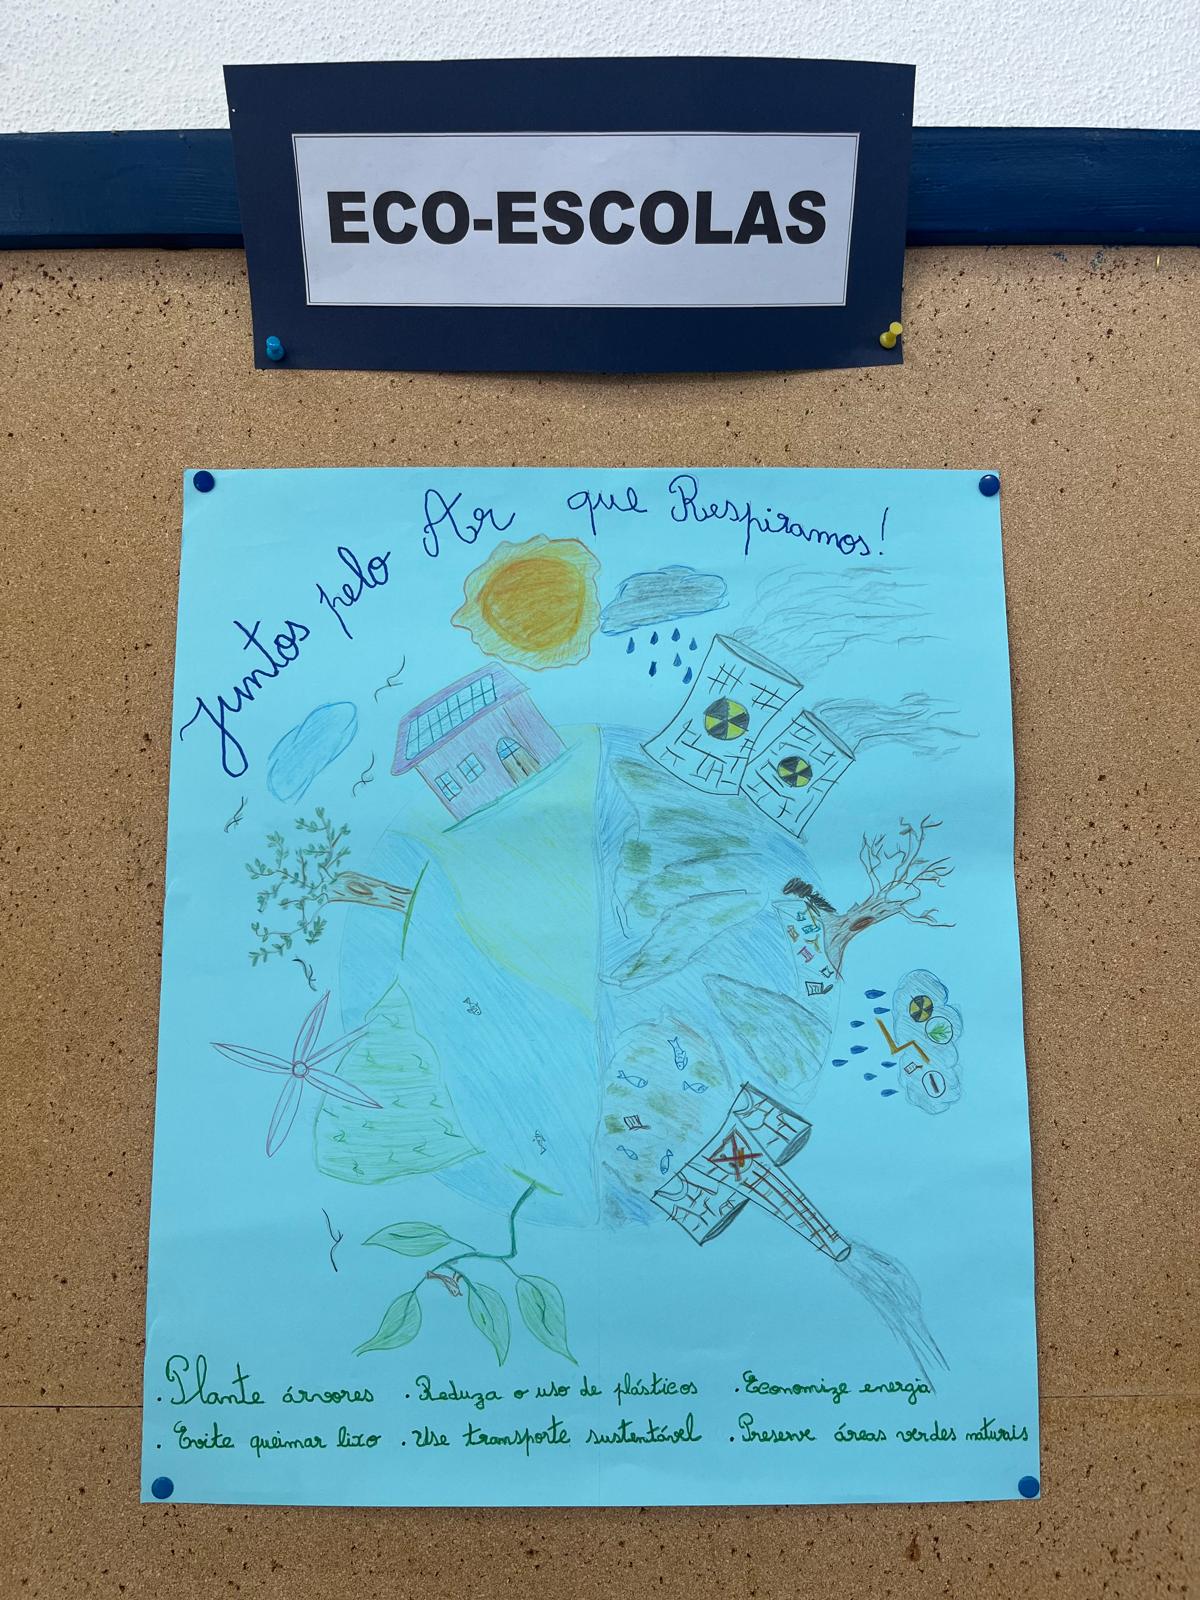 ECO-ESCOLAS
Juntos pelo Ar que Respiramos!
. Plante árvores . Reduza o uso de plásticos . Economize energia
. Evite queimar lixo . Use transporte sustentável . Preserve áreas verdes naturais